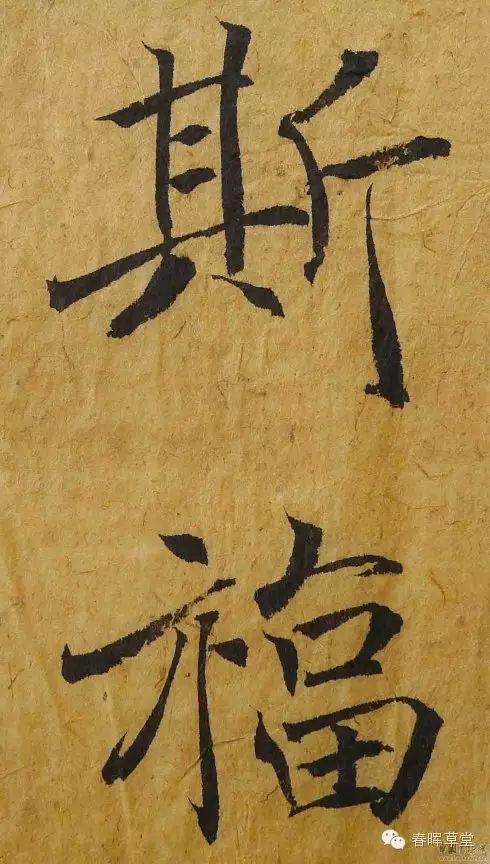 斯
福
春晖草堂